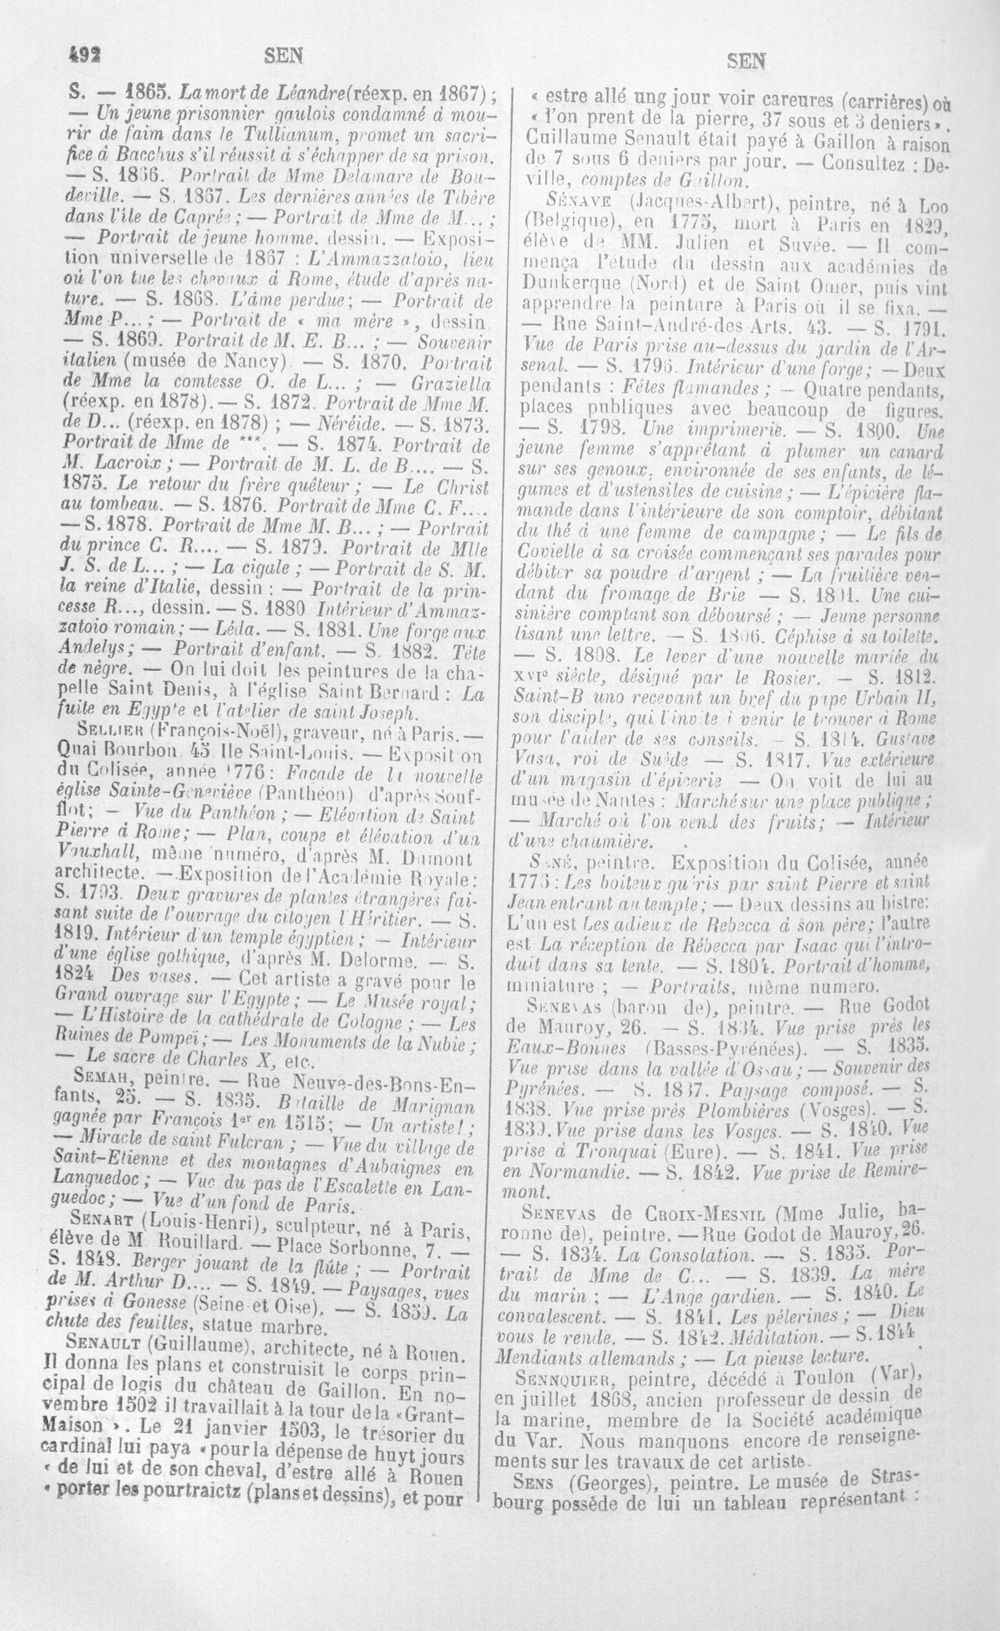 492 SEN
S. — 1865. La mort de Léandre (réexp. en 1867);
— Un jeune prisonnier gaulois condamné à mou-
rir de faim dans le Tullianum, promet un sacri-
fice à Bacchus s'il réussit à s'échapper de sa prison.
— S. 1866. Portrait de Mme Delamare de Bou-
deville. — S. 1867. Les dernières années de Tibère
dans l'île de Caprée; — Portrait de Mme de M...;
— Portrait de jeune homme, dessin. — Exposi-
tion universelle de 1867 : L'Ammazzatoio, lieu
où l'on tue les chevaux à Rome, étude d'après na-
ture. — S. 1868. L'âme perdue; — Portrait de
Mme P...; — Portrait de « ma mère », dessin.
— S. 1869. Portrait de M. E. B...; — Souvenir
italien (musée de Nancy). — S. 1870. Portrait
de Mme la comtesse O. de L...; — Graziella
(réexp. en 1878). — S. 1872. Portrait de Mme M.
de D... (réexp. en 1878); — Néréide. — S. 1873.
Portrait de Mme de ***. — S. 1874. Portrait de
M. Lacroix; — Portrait de M. L. de B.... — S.
1875. Le retour du frère quêteur; — Le Christ
au tombeau. — S. 1876. Portrait de Mme C. F....
— S. 1878. Portrait de Mme M. B...; — Portrait
du prince C. R.... — S. 1879. Portrait de Mlle
J. S. de L...; — La cigale; — Portrait de S. M.
la reine d'Italie, dessin : — Portrait de la prin-
cesse R..., dessin. — S. 1880 Intérieur d'Ammaz-
zatoio romain; — Léda. — S. 1881. Une forge aux
Andelys; — Portrait d'enfant. — S. 1882. Tête
de nègre. — On lui doit les peintures de la cha-
pelle Saint Denis, à l'église Saint Bernard : La
fuite en Egypte et l'atelier de saint Joseph.
SELLIER (François-Noël), graveur, né à Paris. —
Quai Bourbon 45 Ile Saint-Louis. — Exposition
du Colisée, année 1776 : Façade de la nouvelle
église Sainte-Geneviève (Panthéon) d'après Souf-
flot; — Vue du Panthéon; — Elévation de Saint
Pierre à Rome; — Plan, coupe et élévation d'un
Vauxhall, même numéro, d'après M. Dumont
architecte. — Exposition de l'Académie Royale :
S. 1793. Deux gravures de plantes étrangères fai-
sant suite de l'ouvrage du citoyen l'Héritier. — S.
1819. Intérieur d'un temple égyptien; — Intérieur
d'une église gothique, d'après M. Delorme. — S.
1824 Des vases. — Cet artiste a gravé pour le
Grand ouvrage sur l'Egypte; — Le Musée royal;
— L'Histoire de la cathédrale de Cologne; — Les
Ruines de Pompeï; — Les Monuments de la Nubie;
— Le sacre de Charles X, etc.
SEMAH, peintre. — Rue Neuve-des-Bons-En-
fants, 25. — S. 1835. Bataille de Marignan
gagnée par François 1er en 1515; — Un artiste!;
— Miracle de saint Fulcran; — Vue du village de
Saint-Etienne et des montagnes d'Aubaignes en
Languedoc; — Vue du pas de l'Escalette en Lan-
guedoc; — Vue d'un fond de Paris.
SENART (Louis-Henri), sculpteur, né à Paris,
élève de M Rouillard. — Place Sorbonne, 7. —
S. 1848. Berger jouant de la flûte; — Portrait
de M. Arthur D.... — S. 1849. — Paysages, vues
prises à Gonesse (Seine et Oise). — S. 1859. La
chute des feuilles, statue marbre.
SENAULT (Guillaume), architecte, né à Rouen.
Il donna les plans et construisit le corps prin-
cipal de logis du château de Gaillon. En no-
vembre 1502 il travaillait à la tour de la «Grant-
Maison ». Le 21 janvier 1503, le trésorier du
cardinal lui paya « pour la dépense de huyt jours
« de lui et de son cheval, d'estre allé à Rouen
« porter les pourtraictz (plans et dessins), et pour
SEN
« estre allé ung jour voir careures (carrières) où
« l'on prent de la pierre, 37 sous et 3 deniers ».
Guillaume Senault était payé à Gaillon à raison
de 7 sous 6 deniers par jour. — Consultez : De-
ville, comptes de Gaillon.
SÉNAVE (Jacques-Albert), peintre, né à Loo
(Belgique), en 1775, mort à Paris en 1829,
élève de MM. Julien et Suvée. — Il com-
mença l'étude du dessin aux académies de
Dunkerque (Nord) et de Saint Omer, puis vint
apprendre la peinture à Paris où il se fixa. —
— Rue Saint-André-des Arts, 43. — S. 1791.
Vue de Paris prise au-dessus du jardin de l'Ar-
senal. — S. 1796. Intérieur d'une forge; — Deux
pendants : Fêtes flamandes; — Quatre pendants,
places publiques avec beaucoup de figures.
— S. 1798. Une imprimerie. — S. 1800. Une
jeune femme s'apprêtant à plumer un canard
sur ses genoux, environnée de ses enfants, de lé-
gumes et d'ustensiles de cuisine; — L'épicière fla-
mande dans l'intérieure de son comptoir, débitant
du thé à une femme de campagne; — Le fils de
Covielle à sa croisée commençant ses parades pour
débiter sa poudre d'argent; — La fruitière ven-
dant du fromage de Brie — S. 1801. Une cui-
sinière comptant son déboursé; — Jeune personne
lisant une lettre. — S. 1806. Céphise à sa toilette.
— S. 1808. Le lever d'une nouvelle mariée du
XVIe siècle, désigné par le Rosier. — S. 1812.
Saint-Bruno recevant un bref du pape Urbain II,
son disciple, qui l'invite à venir le trouver à Rome
pour l'aider de ses conseils. — S. 1814. Gustave
Vasa, roi de Suède — S. 1817. Vue extérieure
d'un magasin d'épicerie — On voit de lui au
musée de Nantes : Marché sur une place publique;
— Marché où l'on vend des fruits; — Intérieur
d'une chaumière.
SENÉ, peintre. Exposition du Colisée, année
1776 : Les boiteux guéris par saint Pierre et saint
Jean entrant au temple; — Deux dessins au bistre:
L'un est Les adieux de Rebecca à son père; l'autre
est La réception de Rébecca par Isaac qui l'intro-
duit dans sa tente. — S. 1804. Portrait d'homme,
miniature; — Portraits, même numéro.
SENEVAS (baron de), peintre. — Rue Godot
de Mauroy, 26. — S. 1834. Vue prise près les
Eaux-Bonnes (Basses-Pyrénées). — S. 1835.
Vue prise dans la vallée d'Ossau; — Souvenir des
Pyrénées. — S. 1837. Paysage composé. — S.
1838. Vue prise près Plombières (Vosges). — S.
1839. Vue prise dans les Vosges. — S. 1840. Vue
prise à Tronquai (Eure). — S. 1841. Vue prise
en Normandie. — S. 1842. Vue prise de Remire-
mont.
SENEVAS DE CROIX-MESNIL (Mme Julie, ba-
ronne de), peintre. — Rue Godot de Mauroy, 26.
— S. 1834. La Consolation. — S. 1835. Por-
trait de Mme de C... — S. 1839. La mère
du marin; — L'Ange gardien. — S. 1840. Le
convalescent. — S. 1841. Les pélerines; — Dieu
vous le rende. — S. 1842. Méditation. — S. 1844
Mendiants allemands; — La pieuse lecture.
SENNQUIER, peintre, décédé à Toulon (Var),
en juillet 1868, ancien professeur de dessin de
la marine, membre de la Société académique
du Var. Nous manquons encore de renseigne-
ments sur les travaux de cet artiste.
SENS (Georges), peintre. Le musée de Stras-
bourg possède de lui un tableau représentant :